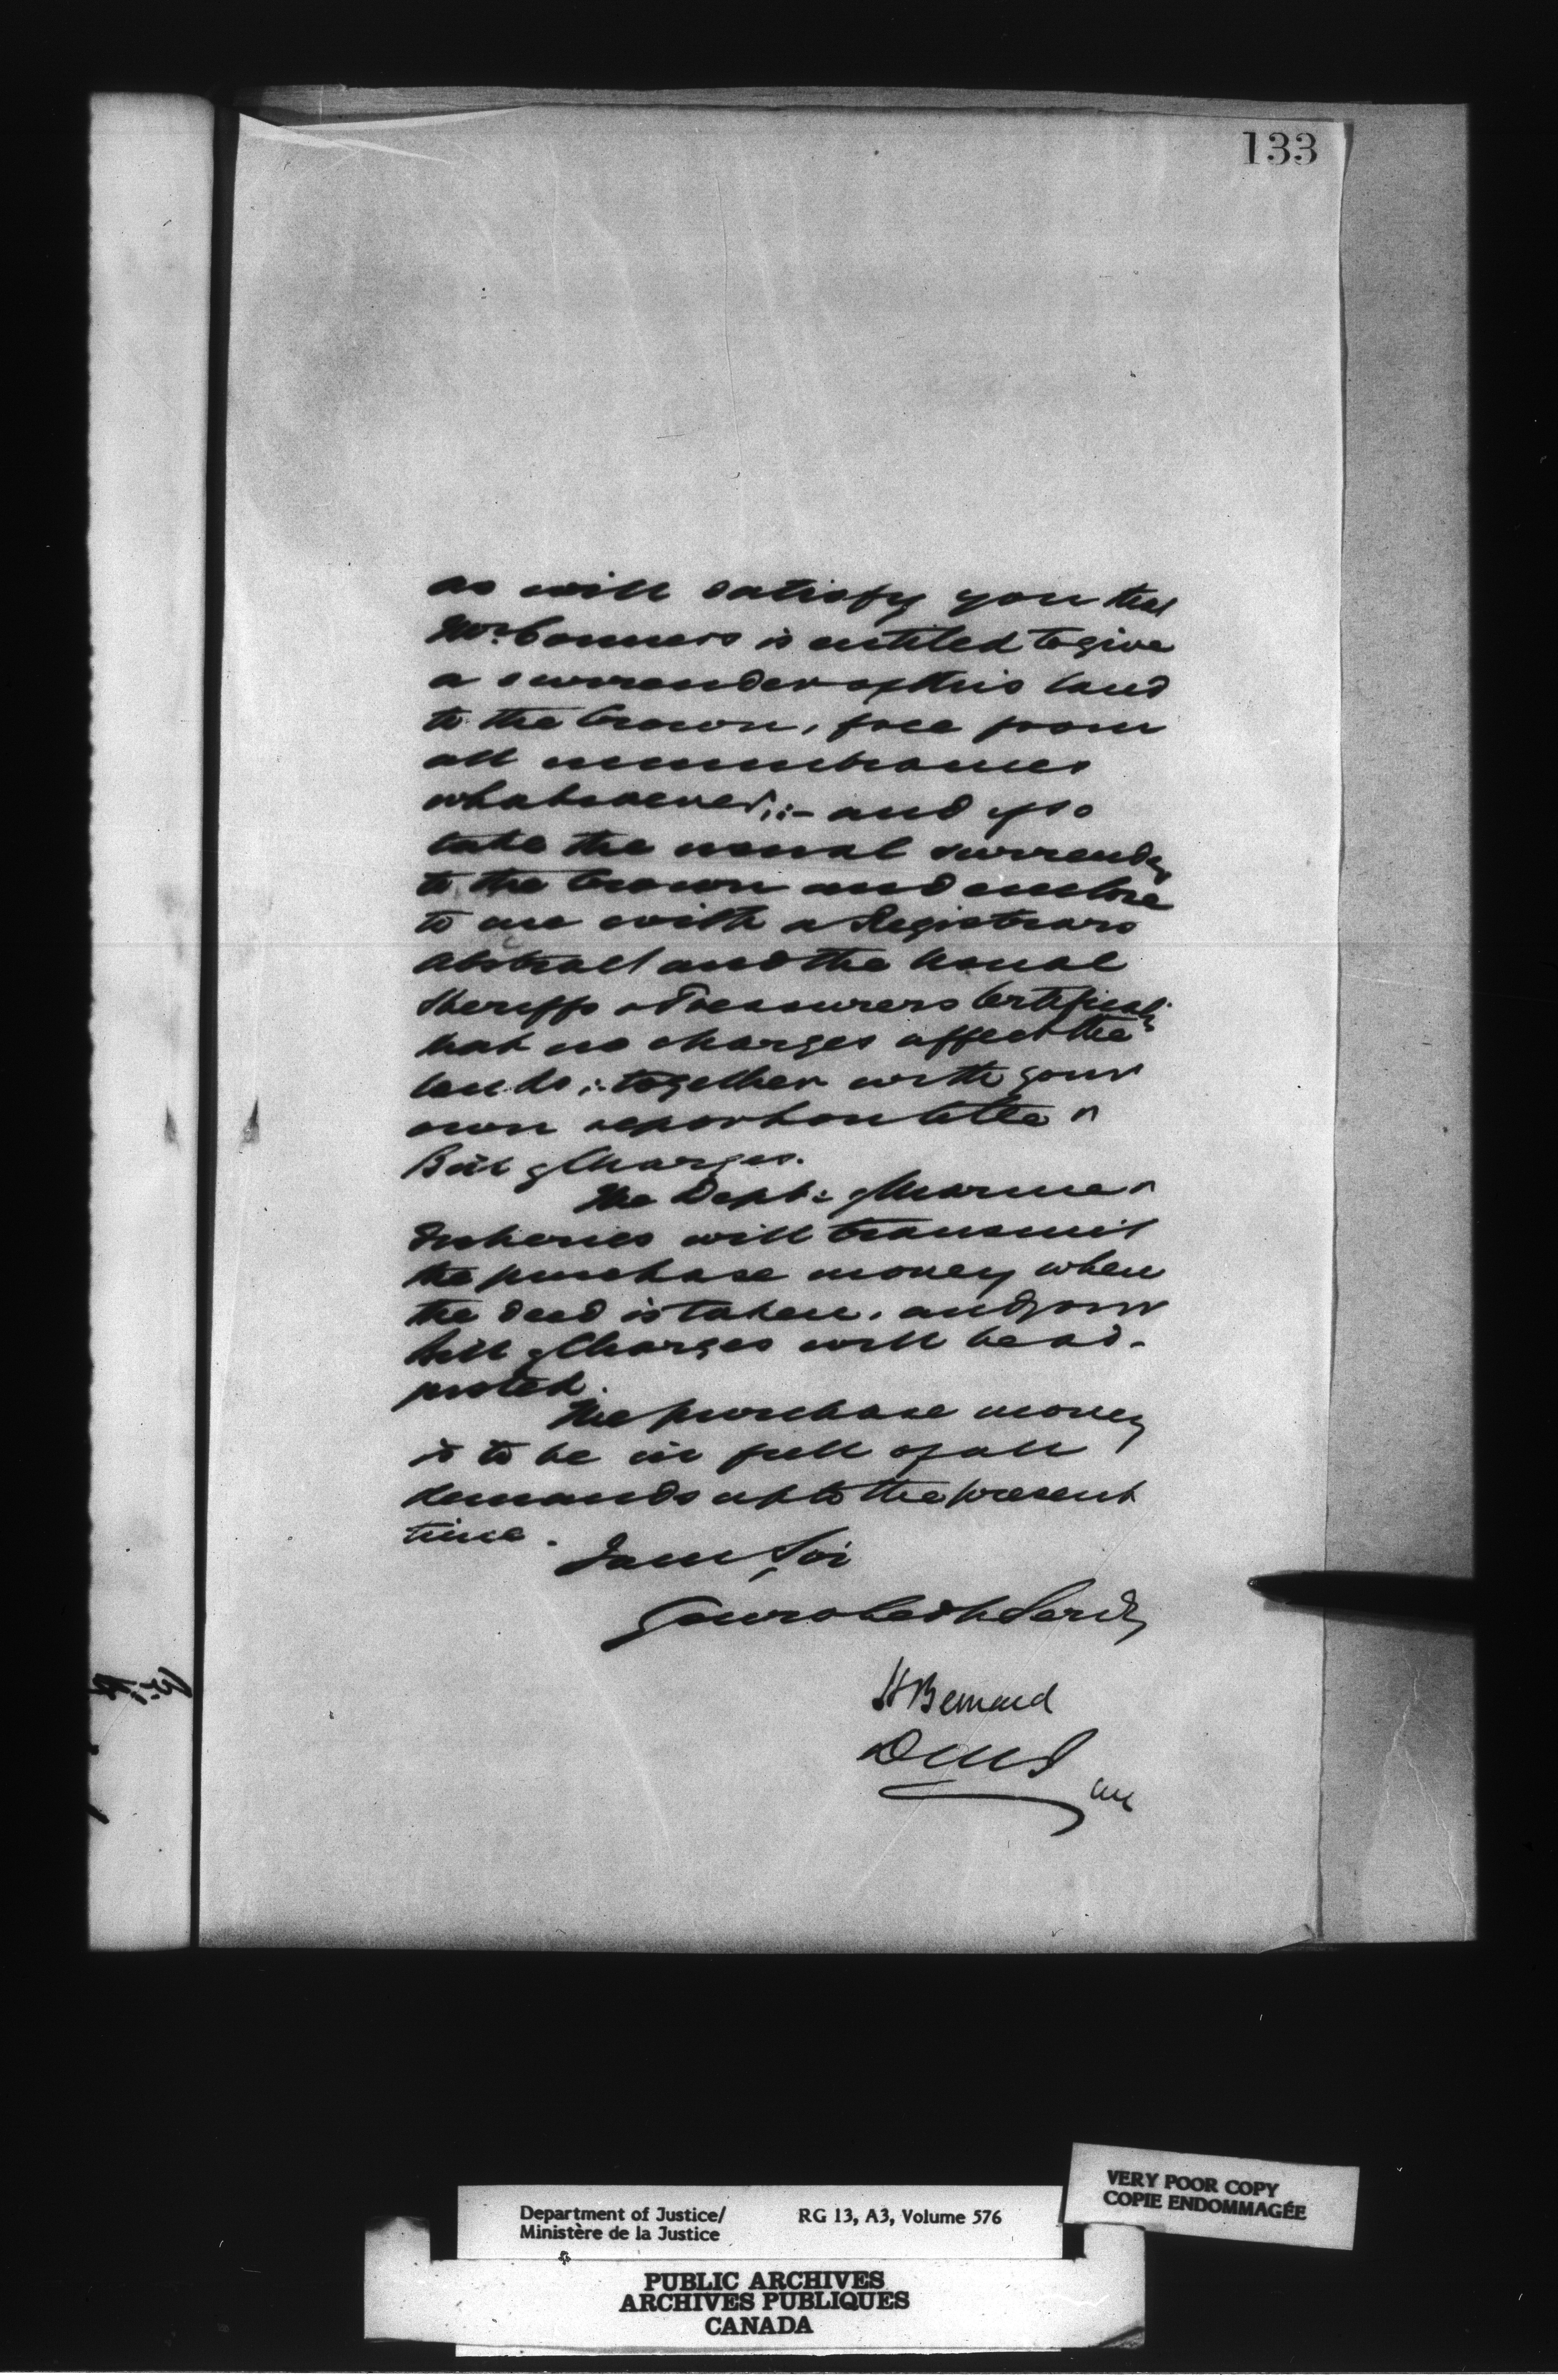 133
as will satisfy you that
Mr. Conners is entitled to give
a surrender of this land
to the Crown, free from
all incumbrances
whatsoever;:- and if so
take the usual surrender
to the Crown and enclose
to me with a Registrars
abstract and the usual
Sheriffs & Treasurers Certificate
that no charges affect the
lands; together with your
own report on title &
Bill of Charges.
The Dept: of Marine &
Fisheries will transmit
the purchase money when
the deed is taken, and your
bill of Charges will be ad-
justed.
The purchase money
is to be in full of all
demands up to the present
time.
I am Sir
Your obedt Servt
H Bernard
D M J
VERY POOR COPY
COPIE ENDOMMAGÉE
Department of Justice/
Ministère de la Justice
RG 13, A3, Volume 576
PUBLIC ARCHIVES
ARCHIVES PUBLIQUES
CANADA